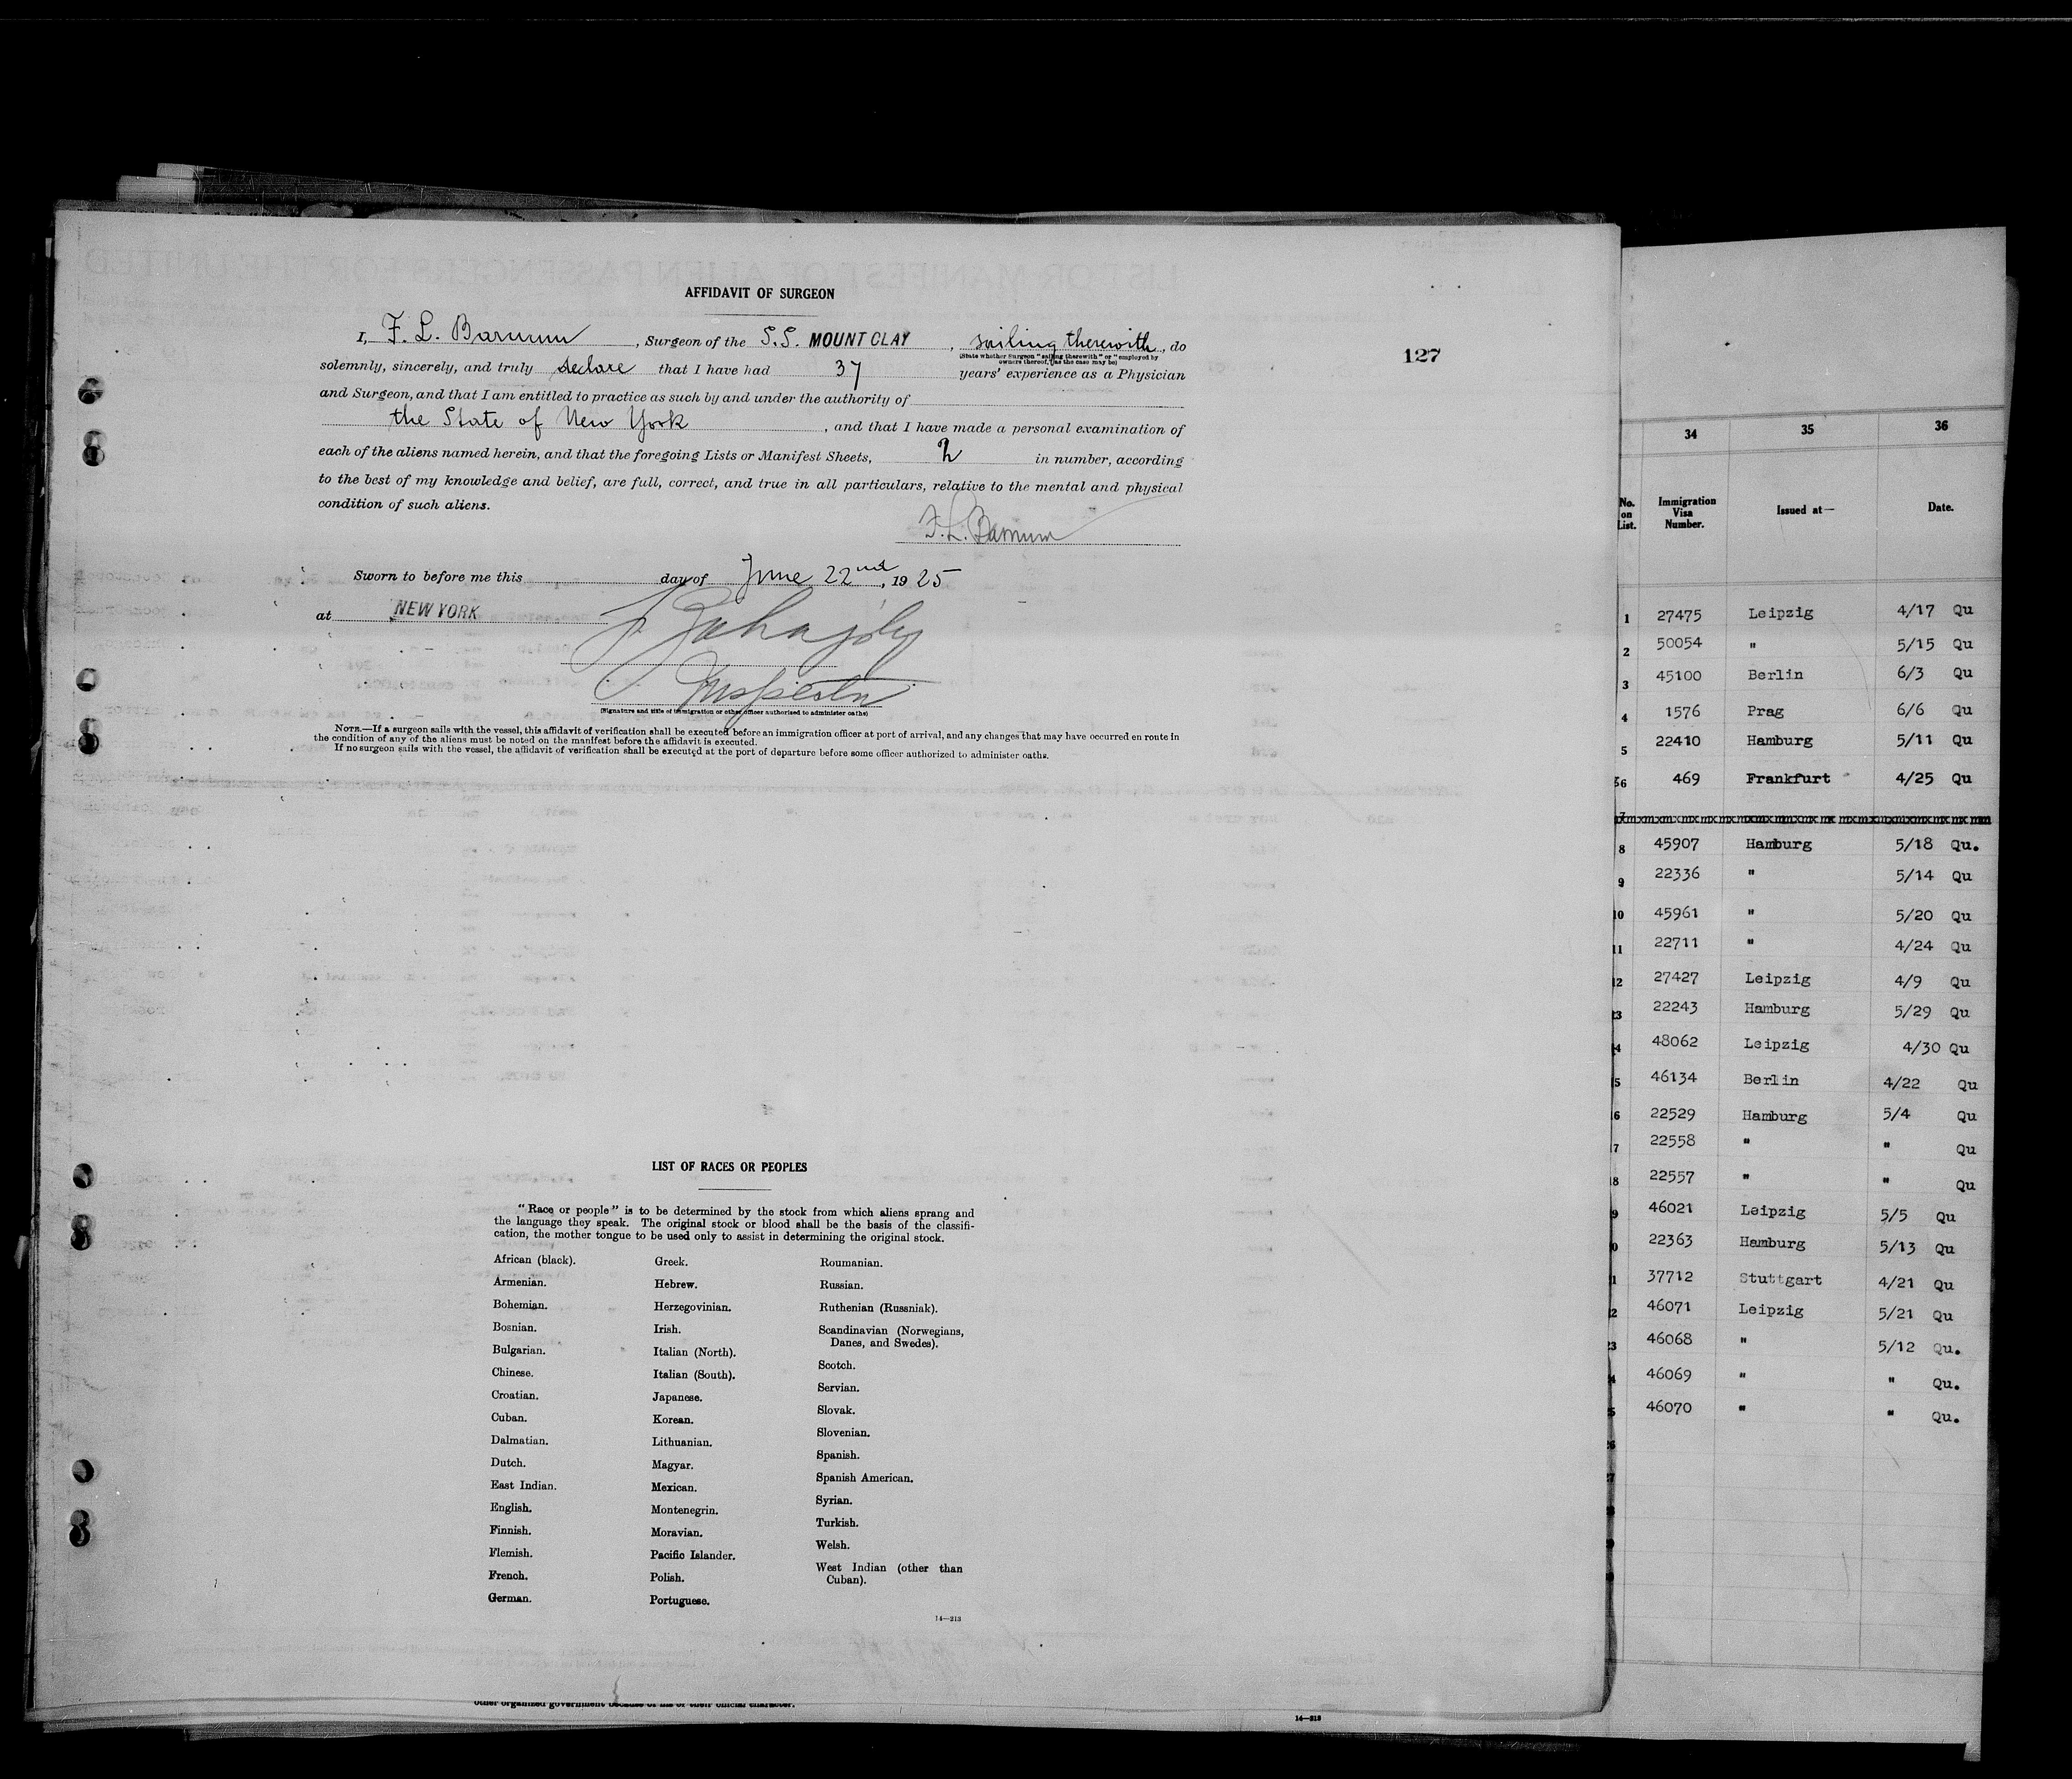 AFFIDAVIT OF SURGEON
I, F. L. Barnum, Surgeon of the S.S. MOUNT CLAY, sailing therewith, do
(State whether Surgeon "sailing therewith" or "employed by
owners thereof," as the case may be)
solemnly, sincerely, and truly declare that I have had 37 years' experience as a Physician
and Surgeon, and that I am entitled to practice as such by and under the authority of
the State of New York, and that I have made a personal examination of
each of the aliens named herein, and that the foregoing Lists or Manifest Sheets, 2 in number, according
to the best of my knowledge and belief, are full, correct, and true in all particulars, relative to the mental and physical
condition of such aliens.
F. L. Barnum
Sworn to before me this day of June 22nd, 1925
at NEW YORK
Inspector
(Signature and title of immigration or other officer authorized to administer oaths)
NOTE.—If a surgeon sails with the vessel, this affidavit of verification shall be executed before an immigration officer at port of arrival, and any changes that may have occurred en route in
the condition of any of the aliens must be noted on the manifest before the affidavit is executed.
If no surgeon sails with the vessel, the affidavit of verification shall be executed at the port of departure before some officer authorized to administer oaths.
127
LIST OF RACES OR PEOPLES
"Race or people" is to be determined by the stock from which aliens sprang and
the language they speak. The original stock or blood shall be the basis of the classifi-
cation, the mother tongue to be used only to assist in determining the original stock.
African (black).
Armenian.
Bohemian.
Bosnian.
Bulgarian.
Chinese.
Croatian.
Cuban.
Dalmatian.
Dutch.
East Indian.
English.
Finnish.
Flemish.
French.
German.
Greek.
Hebrew.
Herzegovinian.
Irish.
Italian (North).
Italian (South).
Japanese.
Korean.
Lithuanian.
Magyar.
Mexican.
Montenegrin.
Moravian.
Pacific Islander.
Polish.
Portuguese.
Roumanian.
Russian.
Ruthenian (Russniak).
Scandinavian (Norwegians,
Danes, and Swedes).
Scotch.
Servian.
Slovak.
Slovenian.
Spanish.
Spanish American.
Syrian.
Turkish.
Welsh.
West Indian (other than
Cuban).
14—213
other organized government because of his or their official character.
14—213
34 35 36
No. on List. Immigration Visa Number. Issued at— Date.
1 27475 Leipzig 4/17 Qu
2 50054 " 5/15 Qu
3 45100 Berlin 6/3 Qu
4 1576 Prag 6/6 Qu
5 22410 Hamburg 5/11 Qu
6 469 Frankfurt 4/25 Qu
7
8 45907 Hamburg 5/18 Qu.
9 22336 " 5/14 Qu
10 45961 " 5/20 Qu
11 22711 " 4/24 Qu
12 27427 Leipzig 4/9 Qu
13 22243 Hamburg 5/29 Qu
4 48062 Leipzig 4/30 Qu
5 46134 Berlin 4/22 Qu
6 22529 Hamburg 5/4 Qu
7 22558 " " Qu
8 22557 " " Qu
9 46021 Leipzig 5/5 Qu
0 22363 Hamburg 5/13 Qu
1 37712 Stuttgart 4/21 Qu
2 46071 Leipzig 5/21 Qu
3 46068 " 5/12 Qu.
4 46069 " " Qu.
5 46070 " " Qu.